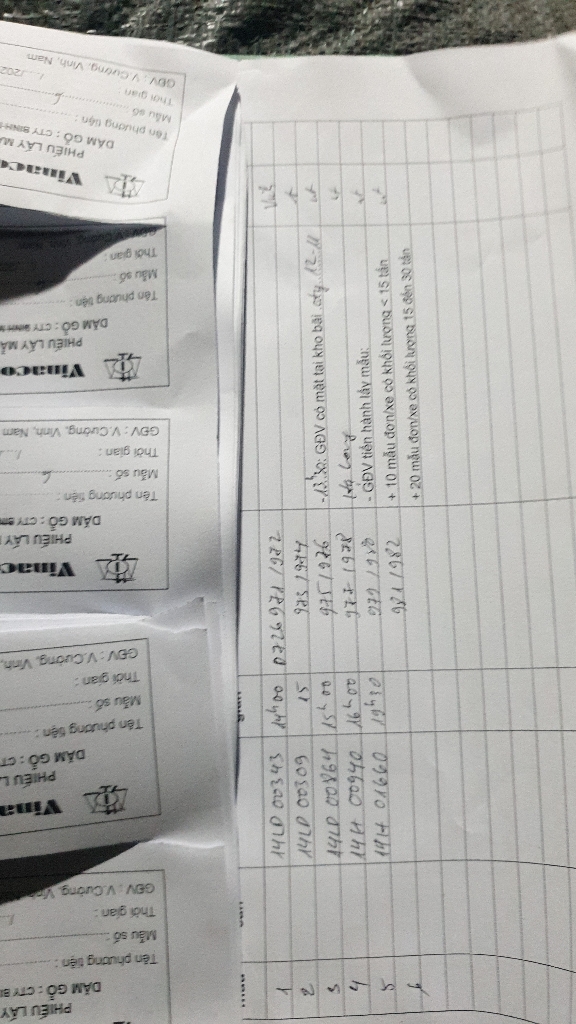 1 14LD 00343 14h00 0726971/972
2 14LD 00309 15 973/974
3 14LD 00864 15h00 975/976
4 14H 00940 16h00 977/978
5 14H 01660 19h30 979/980
6 981/982
-13h30: GĐV có mặt tại kho bãi cty 12.11
Hạ Long
- GĐV tiến hành lấy mẫu:
+ 10 mẫu đơn/xe có khối lượng < 15 tấn
+ 20 mẫu đơn/xe có khối lượng 15 đến 30 tấn
Vinaco
PHIẾU LẤY MẪ
DĂM GỖ : CTY BÌNH M
Tên phương tiện :
Mẫu số :
Thời gian :
GĐV : V.Cường, Vinh, Nam
Vinaco
PHIẾU LẤY MẪ
DĂM GỖ : CTY BÌNH M
Tên phương tiện :
Mẫu số :
Thời gian :
Vinac
PHIẾU LẤY
DĂM GỖ : CTY BÌN
Tên phương tiện :
Mẫu số :
Thời gian :
GĐV : V.Cường, Vinh, Nam
Vinac
PHIẾU LẤ
DĂM GỖ : CT
Tên phương tiện :
Mẫu số :
Thời gian :
GĐV : V.Cường, Vinh,
PHIẾU LẤY
DĂM GỖ : CTY BÌ
Tên phương tiện :
Mẫu số :
Thời gian :
GĐV : V.Cường, Vinh